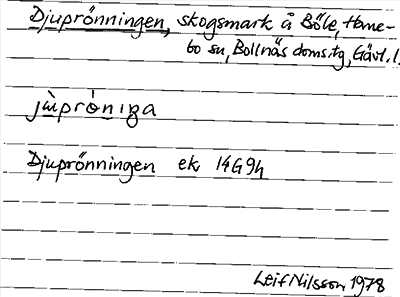 Djuprönningen, skogsmark å Böle, Hane-
bo sn, Bollnäs doms.tg, Gävl. l.
jù̀prö̀niŋa
Djuprönningen ek 14G9h
Leif Nilsson 1978